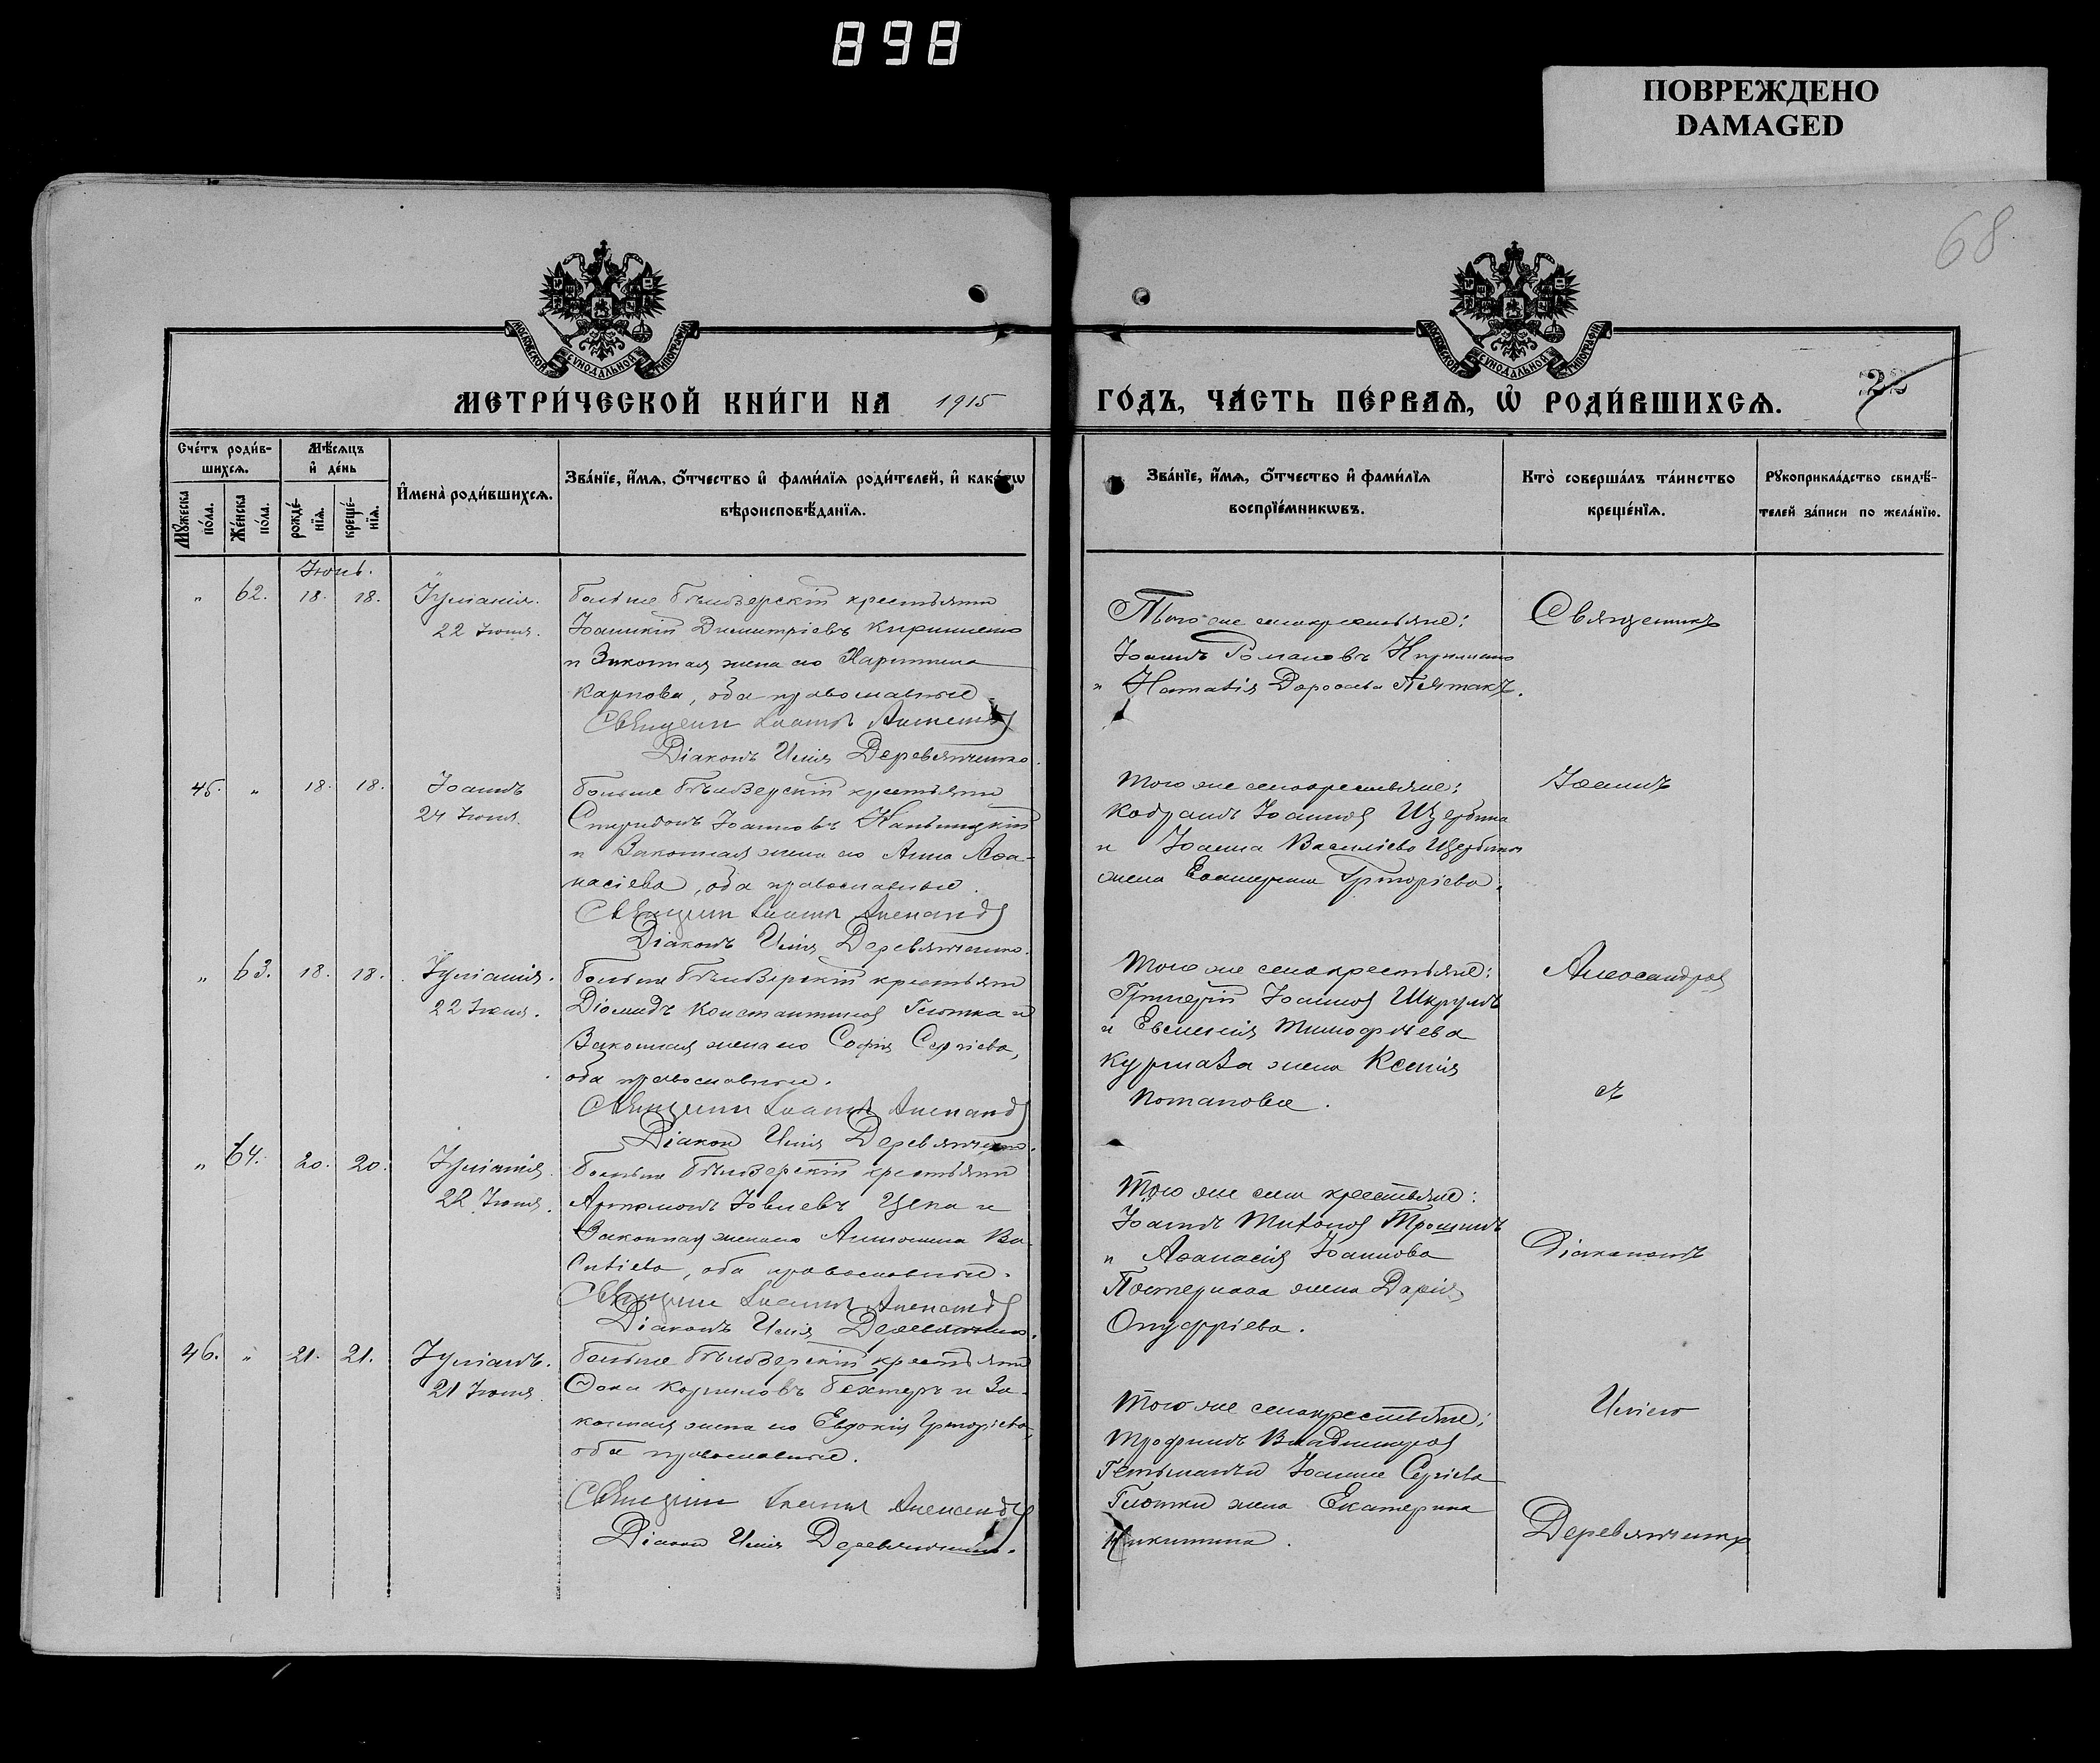 898
ПОВРЕЖДЕНО
DAMAGED
68
МОСКОВСКОЙ СУНОДАЛЬНОЙ ТИПОГРАФІИ
МОСКОВСКОЙ СУНОДАЛЬНОЙ ТИПОГРАФІИ
МЕТРИ́ЧЕСКОЙ КНИ́ГИ НА 1915
ГО́ДЪ, ЧА́СТЬ ПЕ́РВАѦ, Ѡ РОДИ́ВШИХСѦ.
22
Сче́тъ роди́в-
шихсѧ.
Мѣ́сѧцъ
и҆ де́нь
И҆мена̀ роди́вшихсѧ.
Зва́нїе, и҆́мѧ, ѻ҆́тчество и҆ фами́лїѧ роди́телей, и҆ како́гѡ
вѣроисповѣ́данїѧ.
Мꙋ́жеска
по́ла.
Же́нска
по́ла.
рожде́-
нїѧ.
креще́-
нїѧ.
Зва́нїе, и҆́мѧ, ѻ҆́тчество и҆ фами́лїѧ
воспрїе́мникѡвъ.
Кто̀ соверша́лъ та́инство
креще́нїѧ.
Рꙋкоприкла́дство свидѣ́-
телей за́писи по жела́нїю.
Іюнь.
" 62. 18. 18. Іуліанія.
22 Іюня.
Больше Бѣлозерскій крестьянин
Іоанникій Димитріевъ Кириленко
и Законная жена его Харитина
Карпова, оба православные
Священ Іоаннъ Александ
Діаконъ Илія Деревянченко.
Того же села крестьяне:
Іоаннъ Романовъ Кириленко
и Наталія Дороѳева Пятакъ.
Священникъ
45. " 18. 18. Іоаннъ
24 Іюня.
Больше Бѣлозерскій крестьянин
Спиридонъ Іоанновъ
и Законная жена его Анна Аѳа-
насіева, оба православные.
Священ Іоаннъ Александ
Діаконъ Илія Деревянченко.
Того же села крестьяне:
Іоаннов Щербина
и Іоанна Василіева Щербины
жена Екатерина Григоріева.
Іоаннъ
" 63. 18. 18. Іуліанія.
22 Іюня.
Больше Бѣлозерскій крестьянин
Діомидъ Константинов Глотка и
Законная жена его Софія Сергіева,
оба православные.
Священ Іоаннъ Александ
Діакон Илія Деревянченко.
Того же села крестьяне:
Григорій Іоаннов Шкрупъ
и Тимоѳеева
жена Ксенія
Потапова.
Александров
съ
" 64. 20. 20. Іуліанія.
22 Іюня.
Больше Бѣлозерскій крестьянин
Артамонъ Іовлевъ Цепа и
Законная жена его Антонина Ва-
силіева, оба православные.
Священ Іоаннъ Александ
Діаконъ Илія Деревянченко.
Того же села крестьяне:
Іоаннъ Тихонов
и Аѳанасія Іоаннова
жена Дарія
Онуфріева.
Діакономъ
46. " 21. 21. Іуліанъ.
21 Іюня
Больше Бѣлозерскій крестьянин
Ѳока Корниловъ Бехтеръ и За-
конная жена его Евдокія Григоріева,
оба православные.
Священ Іоаннъ Александ
Діакон Илія Деревянченко.
Того же села крестьяне:
Трофимъ Владимиров
Гетьманъ и Іоанна Сергіева
Глотки жена Екатерина
Никитина.
Иліею
Деревянченко